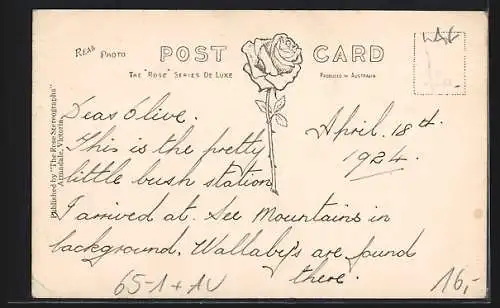 REAL PHOTO
POST CARD
THE "ROSE" SERIES DE LUXE
PRODUCED IN AUSTRALIA
Published by "The Rose Stereographs"
Armadale, Victoria
Dear Olive.
April. 18th.
1924.
This is the pretty
little bush station
I arrived at. See Mountains in
background. Wallaby's are found
there.
65-1+AU
16,-